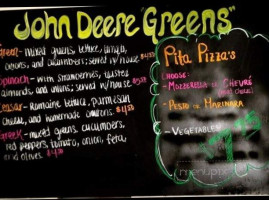 John Deere "Greens"
Green - mixed greens, lettuce,
beans, and cucumbers; served w/house $4.50
Spinach - with strawberries, toasted
almonds, and onions; served w/house
Caesar - Romaine lettuce, parmesan
cheese, and homemade croutons. $4.50
Greek - mixed greens, cucumbers,
red peppers, tomato, onion, feta,
and olives.
Pita Pizza's
Choose:
- Mozzerella or Chevré
- Pesto or Marinara
- Vegetables